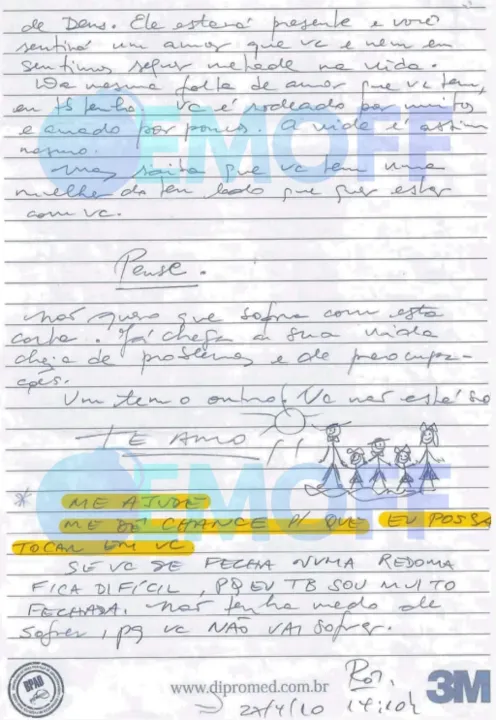 de Deus. Ele estará presente e você
sentirá um amor que vc e nem eu
sentimos sequer metade na vida.
Da mesma falta de amor que vc tem,
eu tb tenho. vc é rodeado por muitos
e amado por poucos. A vida é assim
mesmo.
Mas saiba que vc tem uma
mulher do teu lado que quer estar
com vc.
Pense.
Não quero que sofra com esta
carta. Já chega a sua vida
cheia de problemas e de preocupa-
ções.
Um tem o outro! Vc não está só
TE AMO!!
* ME AJUDE
ME DÊ CHANCE P/ QUE EU POSSA
TOCAR EM VC
SE VC SE FECHA NUMA REDOMA
FICA DIFÍCIL, PQ EU TB SOU MUITO
FECHADA. Não tenha medo de
sofrer, pq vc NÃO VAI sofrer.
EMOFF
EMOFF
DPAD
www.dipromed.com.br
3M
27/4/20 14:10h